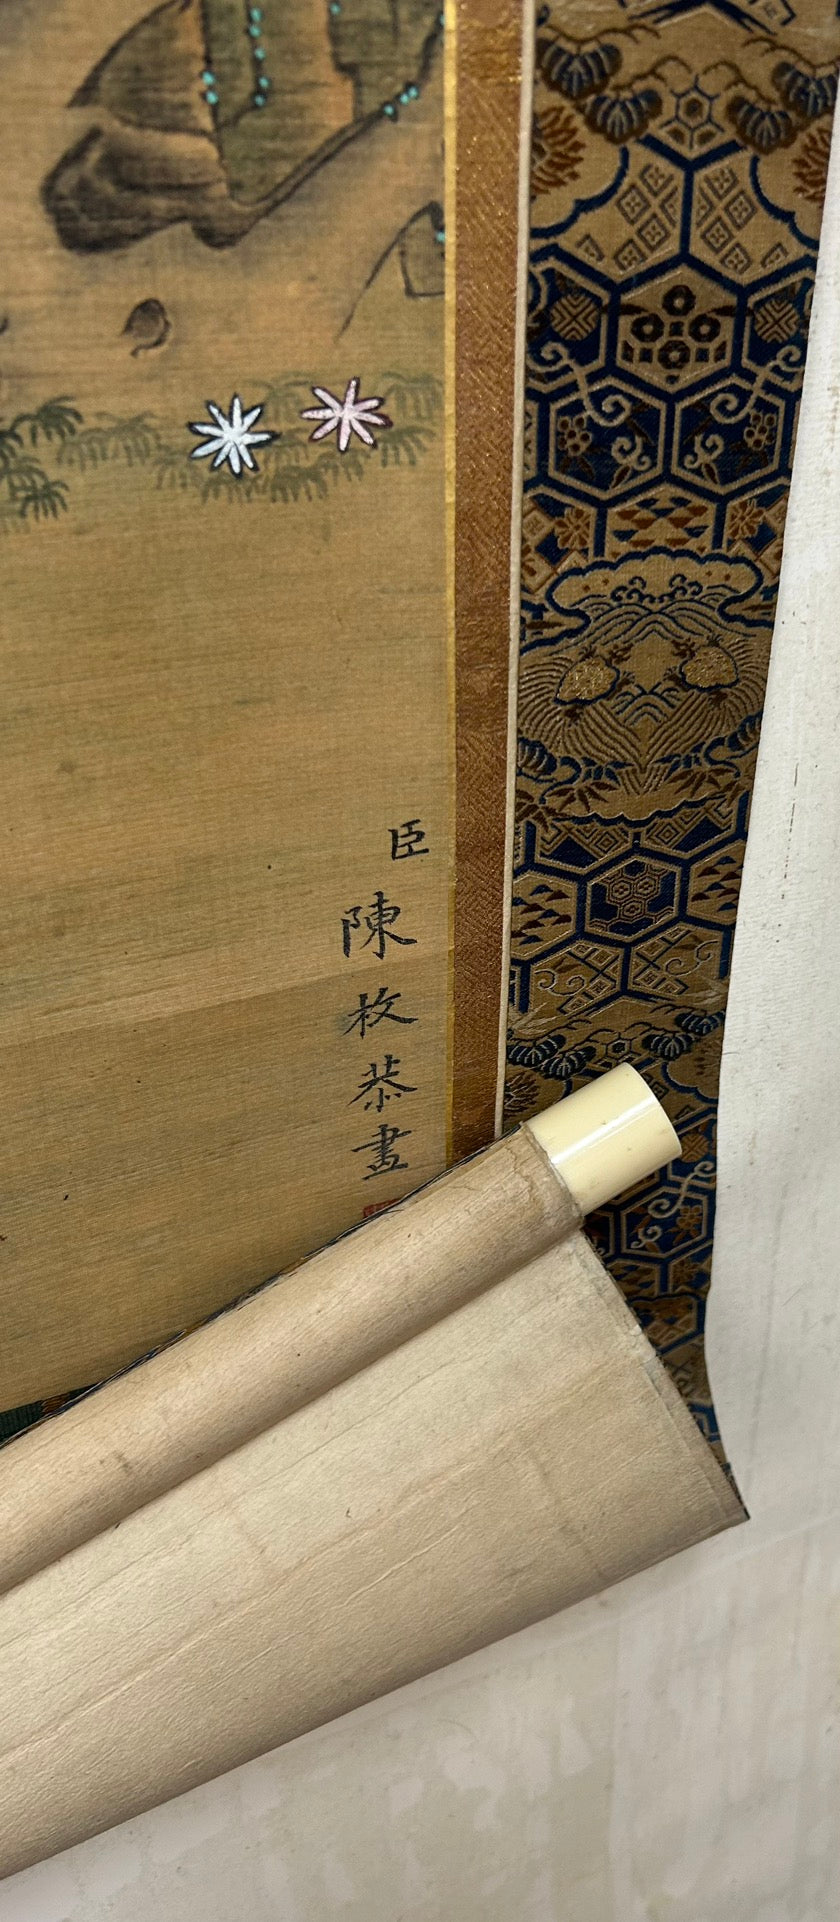 臣陳枚恭畫